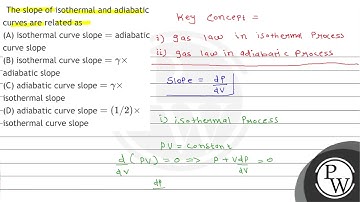 The slope of isothermal and adiabatic
curves are related as
(A) isothermal curve slope = adiabatic
curve slope
(B) isothermal curve slope = γ×
adiabatic slope
(C) adiabatic curve slope = γ×
isothermal slope
(D) adiabatic curve slope = (1/2)×
isothermal curve slope
Key Concept =
i) gas law in isothermal process
ii) gas law in adiabatic process
Slope = dP/dV
i) isothermal Process
PV = constant
d/dV (PV) = 0 => P + V dP/dV = 0
dP
PW